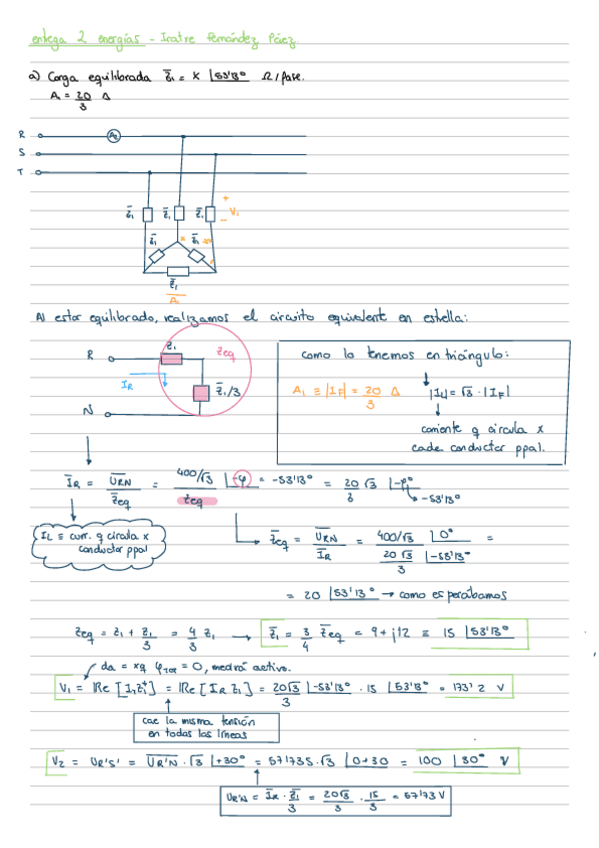 entega 2 energías - Iratxe Fernández Páez.
a) Carga equilibrada Z̄₁ = X |53'13° Ω/fase.
A₁ = 20/3 A
R
A₂
S
T
Z̄₁ Z̄₁ Z̄₁ + V₁ -
Z̄₁ Z̄₁
Z̄₁
A₁
Al estar equilibrado, realizamos el circuito equivalente en estrella:
R Z̄₁ Zeq
I_R Z̄₁/3
N
como lo tenemos en triángulo:
A₁ ≡ |I_F| = 20/3 A |I_L| = √3 · |I_F|
corriente q circula x
cada conductor ppal.
Ī_R = ŪRN/Z̄eq = 400/√3 |-φ / Zeq = -53'13° = 20√3/3 |-φ° -53'13°
I_L ≡ corr. q circula x
conductor ppal
Z̄eq = ŪRN/Ī_R = 400/√3 |0° / 20√3/3 |-53'13° =
= 20 |53'13° → como esperábamos
Zeq = Z₁ + Z₁/3 = 4/3 Z₁ → Z̄₁ = 3/4 Z̄eq = 9+j12 = 15 |53'13°
da = xq φ = 0, medirá activo.
V₁ = Re [I₁Z₁] = Re [I_R Z₁] = 20√3/3 |-53'13° · 15 |53'13° = 173'2 V
cae la misma tensión
en todas las líneas
V₂ = UR'S' = ŪR'N · √3 |+30° = 57'735 · √3 |0+30 = 100 |30° V
UR'N = Ī_R · Z̄₁/3 = 20√3/3 · 15/3 = 57'73 V